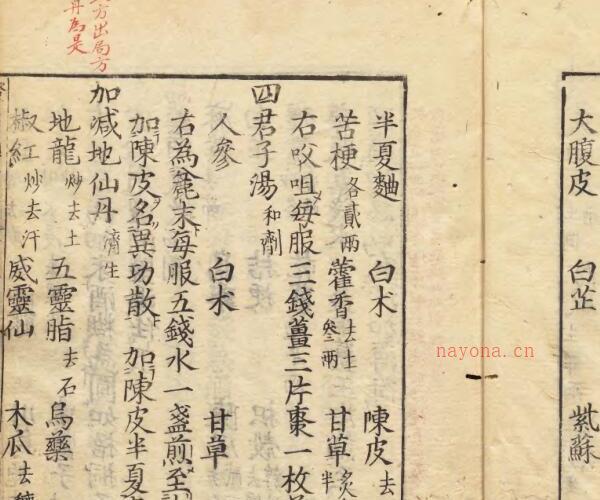 大腹皮　白芷　紫蘇
半夏麯　白朮　陳皮去
苦梗各貳兩　藿香去土叄兩　甘草炙半
右㕮咀每服三錢薑三片棗一枚
四君子湯和劑
人參　白朮　甘草
右為麄末每服五錢水一盞煎至
加陳皮名異功散　加陳皮半夏
加減地仙丹濟生
地龍炒去土　五靈脂去石　烏藥
椒紅炒去汗　威靈仙　木瓜去
方出局方
丹為是
nayona.cn